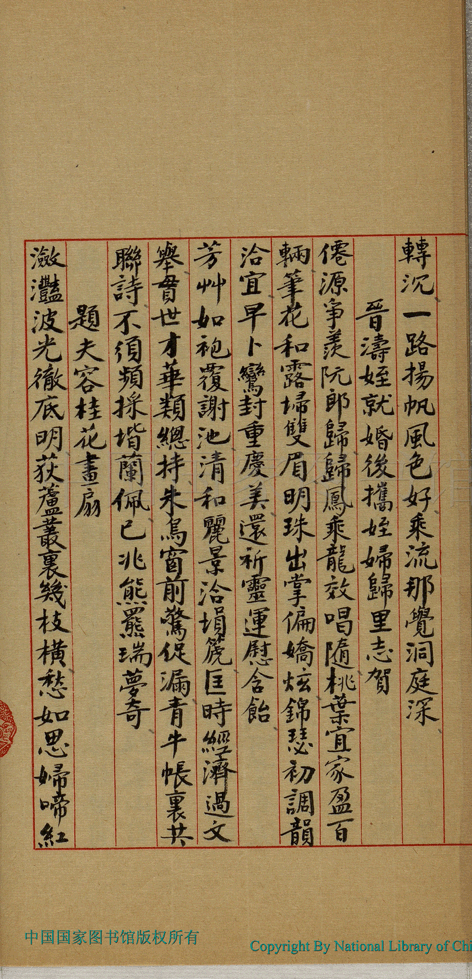 轉沉一路揚帆風色好乘流那覺洞庭深
晉濤姪就婚後攜姪婦歸里志賀
僊源爭羨阮郎歸歸鳳乘龍效唱隨桃葉宜家盈百
輛筆花和露埽雙眉明珠出掌偏嬌炫錦瑟初調韻
洽宜早卜鸞封重慶美還祈靈運慰含飴
芳艸如袍覆謝池清和麗景洽塤箎匡時經濟過文
舉晉世才華類總持朱鳥窗前驚促漏青牛帳裏共
聯詩不須頻採堦蘭佩已兆熊羆瑞夢奇
題夫容桂花畫扇
瀲灩波光徹底明荻蘆叢裏幾枝橫愁如思婦啼紅
中国国家图书馆版权所有
Copyright By National Library of Chi